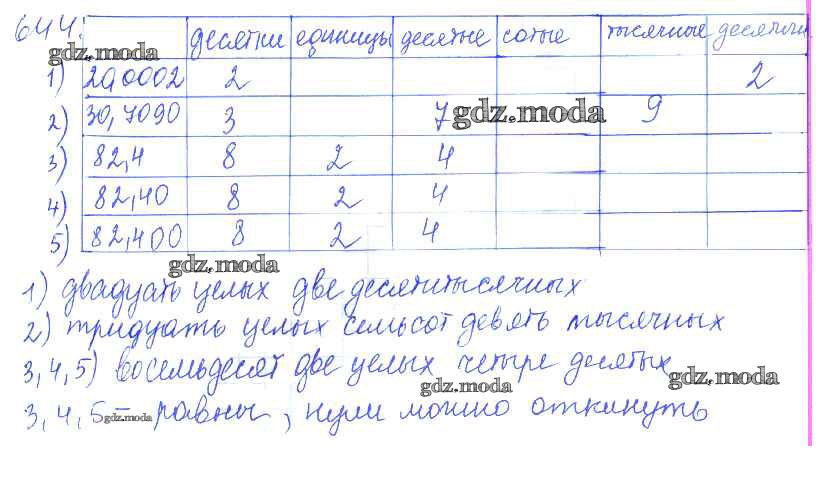 644.
десятки единицы десятые сотые тысячные десятичн
gdz.moda
1) 20,0002 2 2
2) 30,7090 3 7 9
gdz.moda
3) 82,4 8 2 4
4) 82,40 8 2 4
5) 82,400 8 2 4
gdz.moda
1) двадцать целых две десятитысячных
2) тридцать целых семьсот девять тысячных
3, 4, 5) восемьдесят две целых четыре десятых
gdz.moda
gdz.moda
3, 4, 5 – равны, нули можно откинуть
gdz.moda